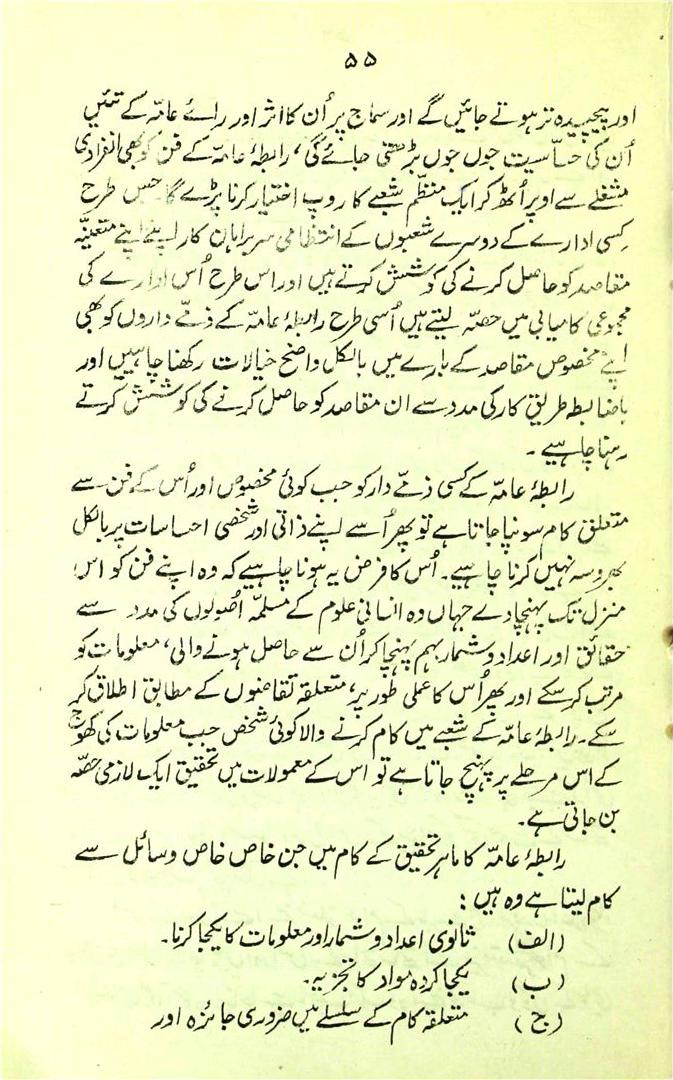 ۵۵
اور پیچیدہ تر ہوتے جائیں گے اور سماج پر اُن کا اثر اور رائے عامّہ کے تئیں
اُن کی حسّاسیت جوں جوں بڑھتی جائے گی، رابطۂ عامّہ کے فن کو بھی انفرادی
مشغلے سے اوپر اُٹھ کر ایک منظّم شعبے کا روپ اختیار کرنا پڑے گا۔ جس طرح
کسی ادارے کے دوسرے شعبوں کے انتظامی سربراہان کار اپنے اپنے متعیّنہ
مقاصد کو حاصل کرنے کی کوشش کرتے ہیں اور اس طرح اُس ادارے کی
مجموعی کامیابی میں حصّہ لیتے ہیں اُسی طرح رابطۂ عامّہ کے ذمّے داروں کو بھی
اپنے مخصوص مقاصد کے بارے میں بالکل واضح خیالات رکھنا چاہییں اور
باضابطہ طریقِ کار کی مدد سے ان مقاصد کو حاصل کرنے کی کوشش کرتے
رہنا چاہیے۔
رابطۂ عامّہ کے کسی ذمّے دار کو جب کوئی مخصوص اور اُس کے فن سے
متعلق کام سونپا جاتا ہے تو پھر اُسے اپنے ذاتی اور شخصی احساسات پر بالکل
بھروسہ نہیں کرنا چاہیے۔ اُس کا فرض یہ ہونا چاہیے کہ وہ اپنے فن کو اس
منزل تک پہنچا دے جہاں وہ انسانی علوم کے مسلمّہ اصُولوں کی مدد سے
حقائق اور اعداد و شمار بہم پہنچا کر اُن سے حاصل ہونے والی، معلومات کو
مرتب کر سکے اور پھر اُس کا عملی طور پر، متعلقہ تقاضوں کے مطابق اطلاق کر
سکے۔ رابطۂ عامّہ کے شعبے میں کام کرنے والا کوئی شخص جب معلومات کی کھوج
کے اس مرحلے پر پہنچ جاتا ہے تو اس کے معمولات میں تحقیق ایک لازمی حصّہ
بن جاتی ہے۔
رابطۂ عامّہ کا ماہر تحقیق کے کام میں جن خاص خاص وسائل سے
کام لیتا ہے وہ ہیں:
(الف) ثانوی اعداد و شمار اور معلومات کا یکجا کرنا۔
(ب) یکجا کردہ مواد کا تجزیہ۔
(ج) متعلقہ کام کے سلسلے میں ضروری جائزہ اور